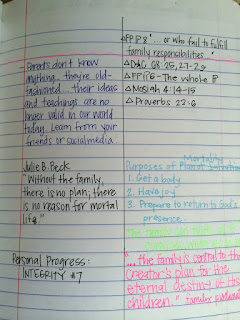 △FP ¶8 "... or who fail to fulfill
family responsibilities..."
△D&C 68:25, 27-29
△FP ¶6 - The whole ¶
△Mosiah 4:14-15
△Proverbs 22:6
- Parents don't know
anything... they're old-
fashioned... their ideas
and teachings are no
longer valid in our world
today. Learn from your
friends or social media.
Mortality
Purposes of Plan of Salvation
1. Get a body
2. Have joy
3. Prepare to return to God's
presence.
Julie B. Beck
"Without the family,
there is no plan; there
is no reason for mortal
life."
"... the family is central to the
Creator's plan for the
eternal destiny of His
children."
Personal Progress:
INTEGRITY #7